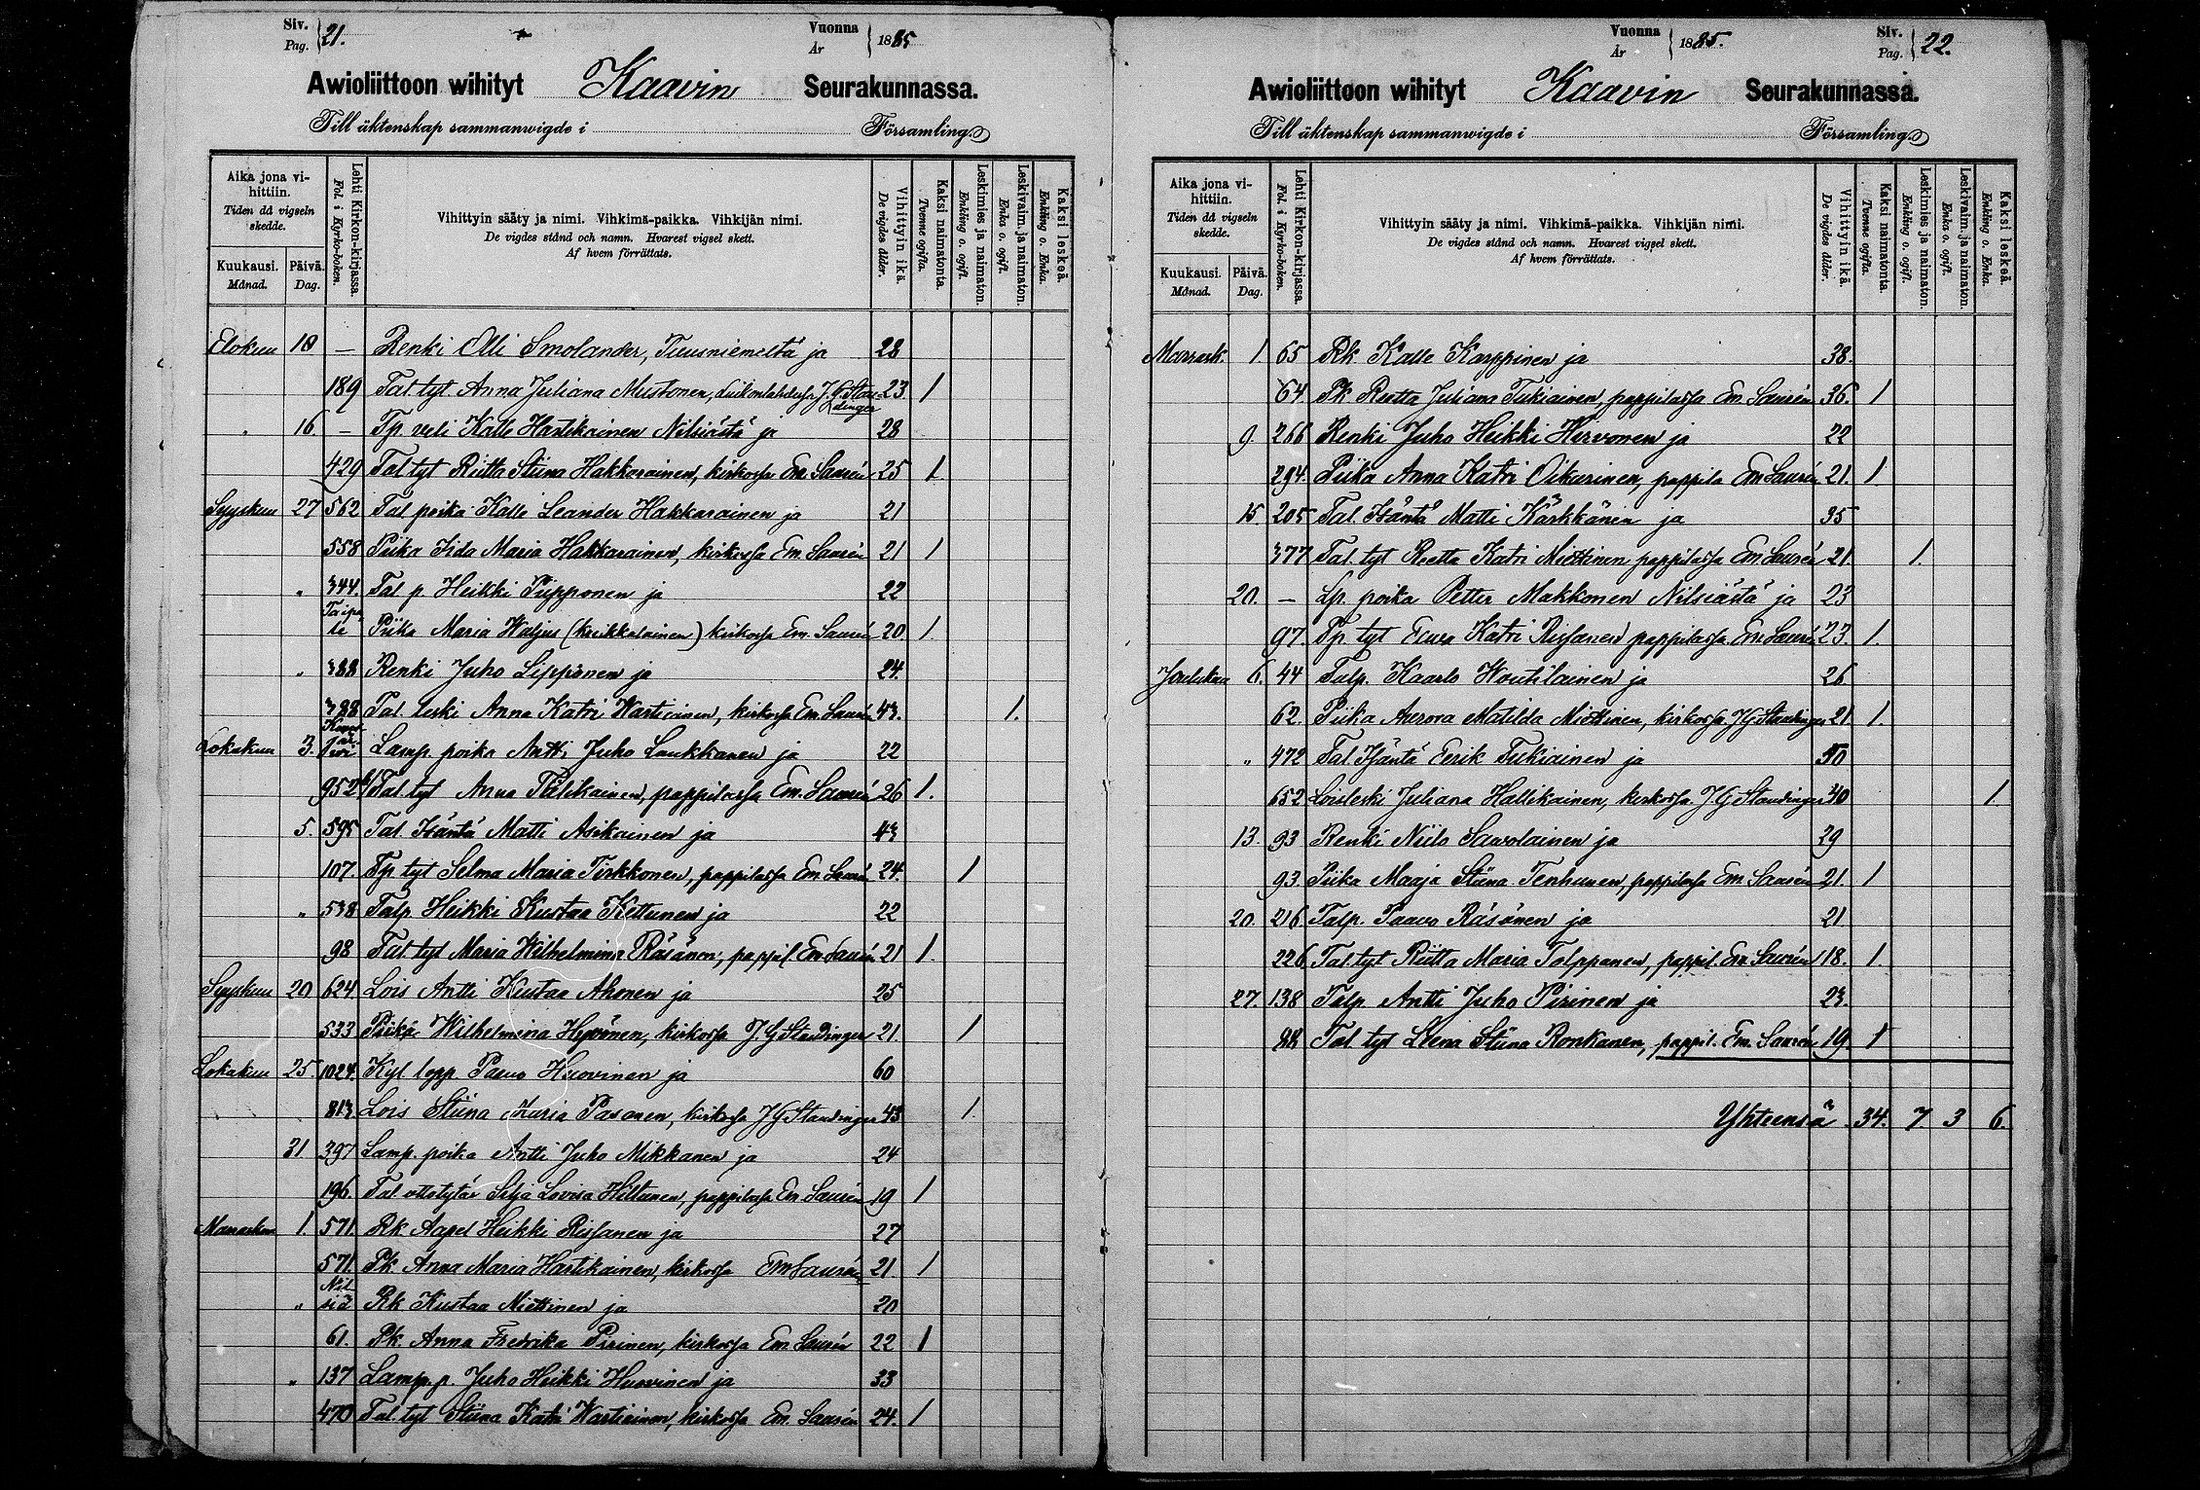 Siv. Pag. 21. Vuonna År 1885
Awioliittoon wihityt Kaavin Seurakunnassa.
Till äktenskap sammanwigde i Församling.
Aika jona vihittiin. Tiden då vigseln skedde.
Kuukausi. Månad. Päivä. Dag.
Lehti Kirkon-kirjassa. Fol. i Kyrko-boken.
Vihittyin sääty ja nimi. Vihkimä-paikka. Vihkijän nimi.
De vigdes stånd och namn. Hvarest vigsel skett.
Af hvem förrättats.
Vihittyin ikä. De vigdes ålder.
Kaksi naimatonta. Tvenne ogifta.
Leskimies ja naimaton. Enkling o. ogift.
Leskivaim. ja naimaton. Enka o. ogift.
Kaksi leskeä. Enkling o. Enka.
Elokuu 10 — Renki Olli Smolander, Tuusniemeltä ja 28
189 Tal. tyt Anna Juliana Mustonen, J. G. Staudinger 23 1
" 16. — Tp. veli Kalle Hartikainen Nilsiästä ja 28
429 Tal. tyt Riitta Stiina Hakkarainen, kirkossa Em. Saurén 25 1
Syyskuu 27 562 Tal. poika Kalle Leander Hakkarainen ja 21
558 Piika Iida Maria Hakkarainen, kirkossa Em. Saurén 21 1
" 344. Tal. p. Heikki Piipponen ja 22
Taipale Piika Maria Waljus (kreikkalainen) kirkossa Em. Saurén 20 1.
" 388 Renki Juho Lipponen ja 24.
388 Tal. leski Anna Katri Wartiainen, kirkossa Em. Saurén 43. 1.
Lokakuu 3. Lamp. poika Antti Juho Laukkanen ja 22
952 Tal. tyt Anna Pitkikainen, pappilassa Em. Saurén 26 1.
5. 595 Tal. Isäntä Matti Asikainen ja 43
107. Tp tyt Selma Maria Tirkkonen, pappilassa Em. Saurén 24. 1
" 538 Talp Heikki Kustaa Kettunen ja 22
98 Tal. tyt Maria Wilhelmina Räsänen, pappil. Em Saurén 21 1.
Syyskuu 20 624. Lois Antti Kustaa Ahonen ja 25
533 Piika Wilhelmina Hyvönen, kirkossa J. G. Staudinger 21. 1
Lokakuu 25. 1024. Kyl. lopp. Paavo Huovinen ja 60
813 Lois Stiina Maria Pasanen, kirkossa J G Staudinger 43 1.
31 397 Lamp. poika Antti Juho Mikkanen ja 24
196. Tal. ottotytär Silja Lovisa Hiltunen, pappilassa Em Saurén 19 1
Marraskuu 1. 571. Rk. Aapel Heikki Rissanen ja 27
571. Pk. Anna Maria Hartikainen, kirkossa Em Saurén 21 1
" Nilsiä Rk Kustaa Miettinen ja 20
61. Pk. Anna Fredrika Pirinen, kirkossa Em. Saurén 22 1
" 137 Lamp. p. Juho Heikki Huovinen ja 33
470 Tal. tyt Stiina Katri Wartiainen, kirkossa Em. Saurén 24. 1
Vuonna År 1885. Siv. Pag. 22.
Awioliittoon wihityt Kaavin Seurakunnassa.
Till äktenskap sammanwigde i Församling.
Aika jona vihittiin. Tiden då vigseln skedde.
Kuukausi. Månad. Päivä. Dag.
Lehti Kirkon-kirjassa. Fol. i Kyrko-boken.
Vihittyin sääty ja nimi. Vihkimä-paikka. Vihkijän nimi.
De vigdes stånd och namn. Hvarest vigsel skett.
Af hvem förrättats.
Vihittyin ikä. De vigdes ålder.
Kaksi naimatonta. Tvenne ogifta.
Leskimies ja naimaton. Enkling o. ogift.
Leskivaim. ja naimaton. Enka o. ogift.
Kaksi leskeä. Enkling o. Enka.
Marrask. 1. 65 Rk. Kalle Karppinen ja 38.
64. Pk Reetta Juliana Tukiainen, pappilassa Em Saurén 36. 1
9. 266 Renki Juho Heikki Hirvonen ja 22
294. Piika Anna Katri Oikarinen, pappila Em Saurén 21. 1.
15. 205 Tal. Isäntä Matti Kärkkänen ja 35
377 Tal. tyt Reetta Katri Miettinen pappilassa Em. Saurén 21. 1.
20. — Lp. poika Petter Makkonen Nilsiästä ja 23
97. Tp. tyt Eeva Katri Rissanen pappilassa Em. Saurén 23. 1.
Joulukuu 6. 44 Talp. Kaarlo Woutilainen ja 26
62. Piika Aurora Matilda Miettinen, kirkossa J G Staudinger 21. 1.
" 472 Tal. Isäntä Eerik Tukiainen ja 50
652 Loisleski Juliana Hallikainen, kirkossa J. G. Staudinger 40 1
13. 93 Renki Niilo Sawolainen ja 29
93. Piika Maaja Stiina Tenhunen, pappilassa Em Saurén 21. 1
20. 216 Talp. Paavo Räsänen ja 21
226 Tal. tyt Riitta Maria Tolppanen, pappil. Em. Saurén 18. 1.
27. 138 Talp. Antti Juho Pirinen ja 23.
88 Tal. tyt Leena Stiina Ronkanen, pappil. Em. Saurén 19 1
Yhteensä 34. 7 3 6.